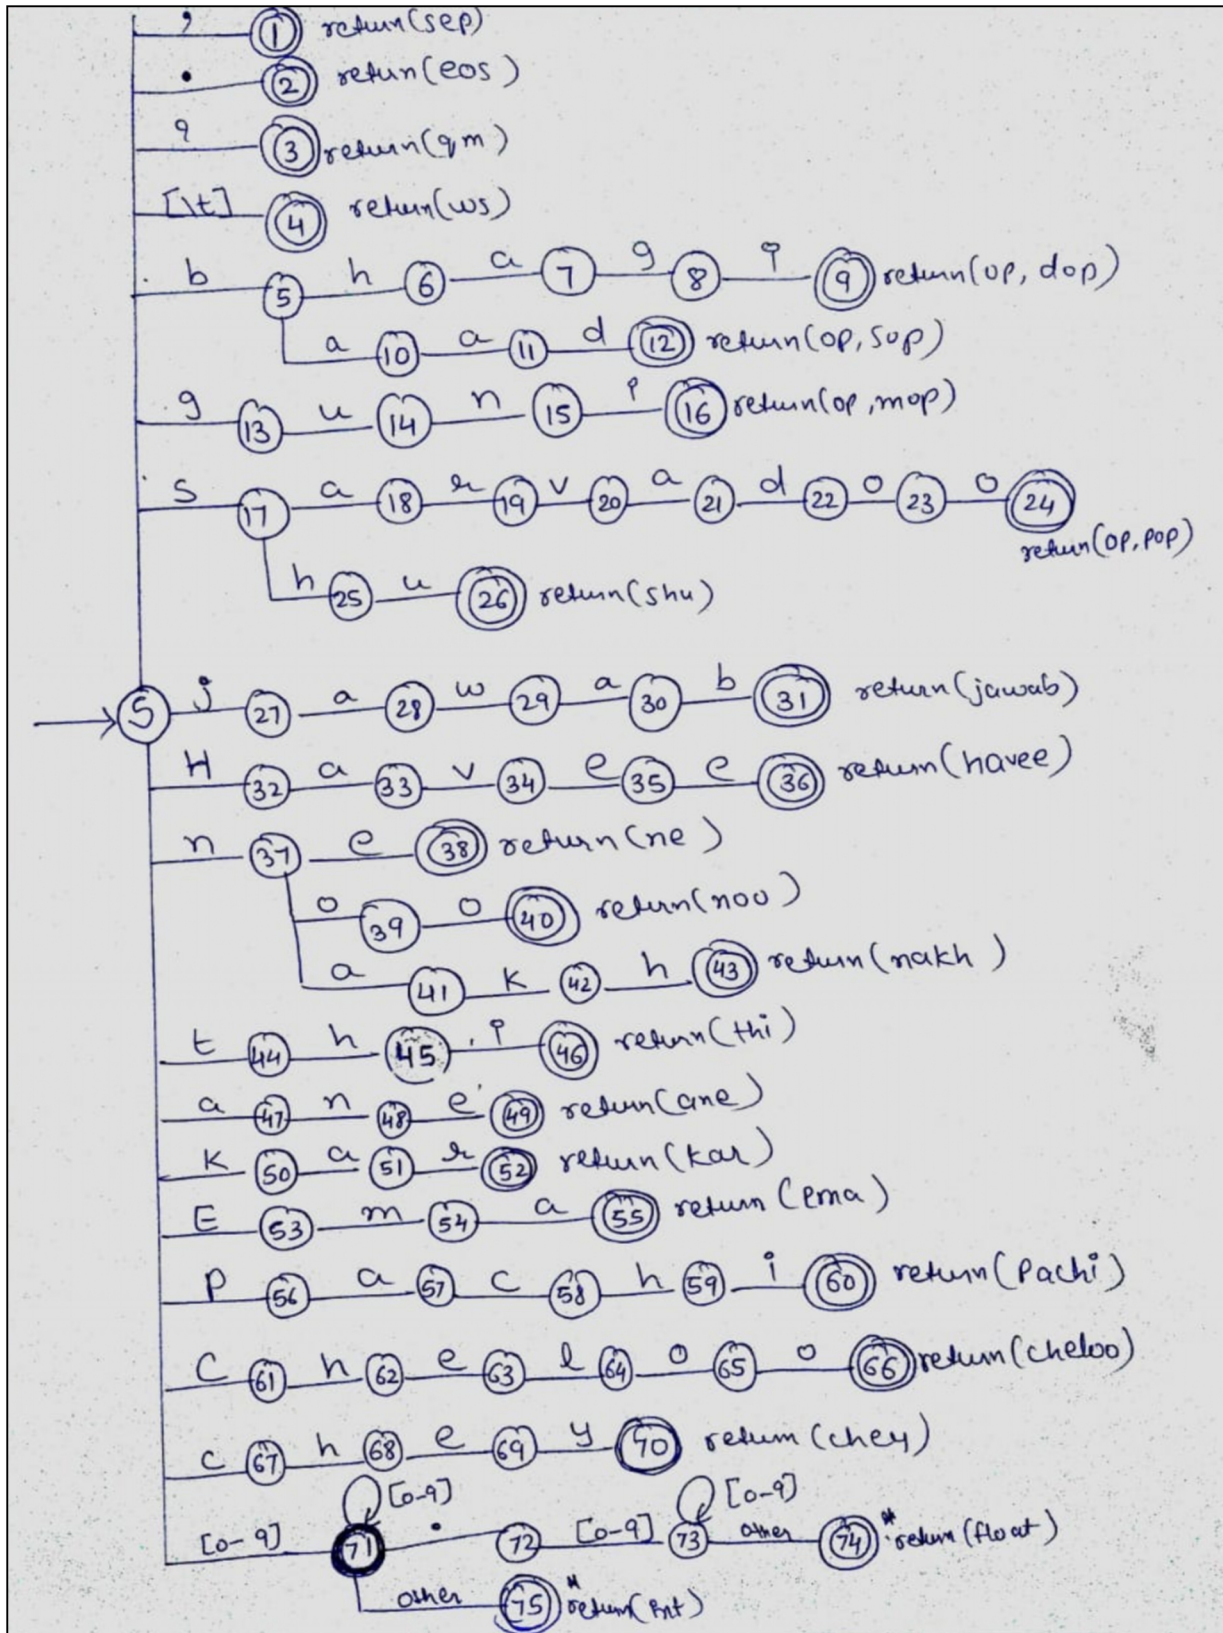 , 1 return(sep)
. 2 return(eos)
? 3 return(qm)
[\t] 4 return(ws)
b 5 h 6 a 7 g 8 i 9 return(op, dop)
a 10 a 11 d 12 return(op, sop)
g 13 u 14 n 15 i 16 return(op, mop)
s 17 a 18 r 19 v 20 a 21 d 22 o 23 o 24
return(op, pop)
h 25 u 26 return(shu)
S j 27 a 28 w 29 a 30 b 31 return(jawab)
H 32 a 33 v 34 e 35 e 36 return(havee)
n 37 e 38 return(ne)
o 39 o 40 return(noo)
a 41 k 42 h 43 return(nakh)
t 44 h 45 i 46 return(thi)
a 47 n 48 e 49 return(ane)
K 50 a 51 r 52 return(kar)
E 53 m 54 a 55 return(ema)
P 56 a 57 c 58 h 59 i 60 return(Pachi)
C 61 h 62 e 63 l 64 o 65 o 66 return(cheloo)
c 67 h 68 e 69 y 70 return(chey)
[0-9] [0-9]
[0-9] 71 . 72 [0-9] 73 other 74 * return(float)
other 75 * return(int)